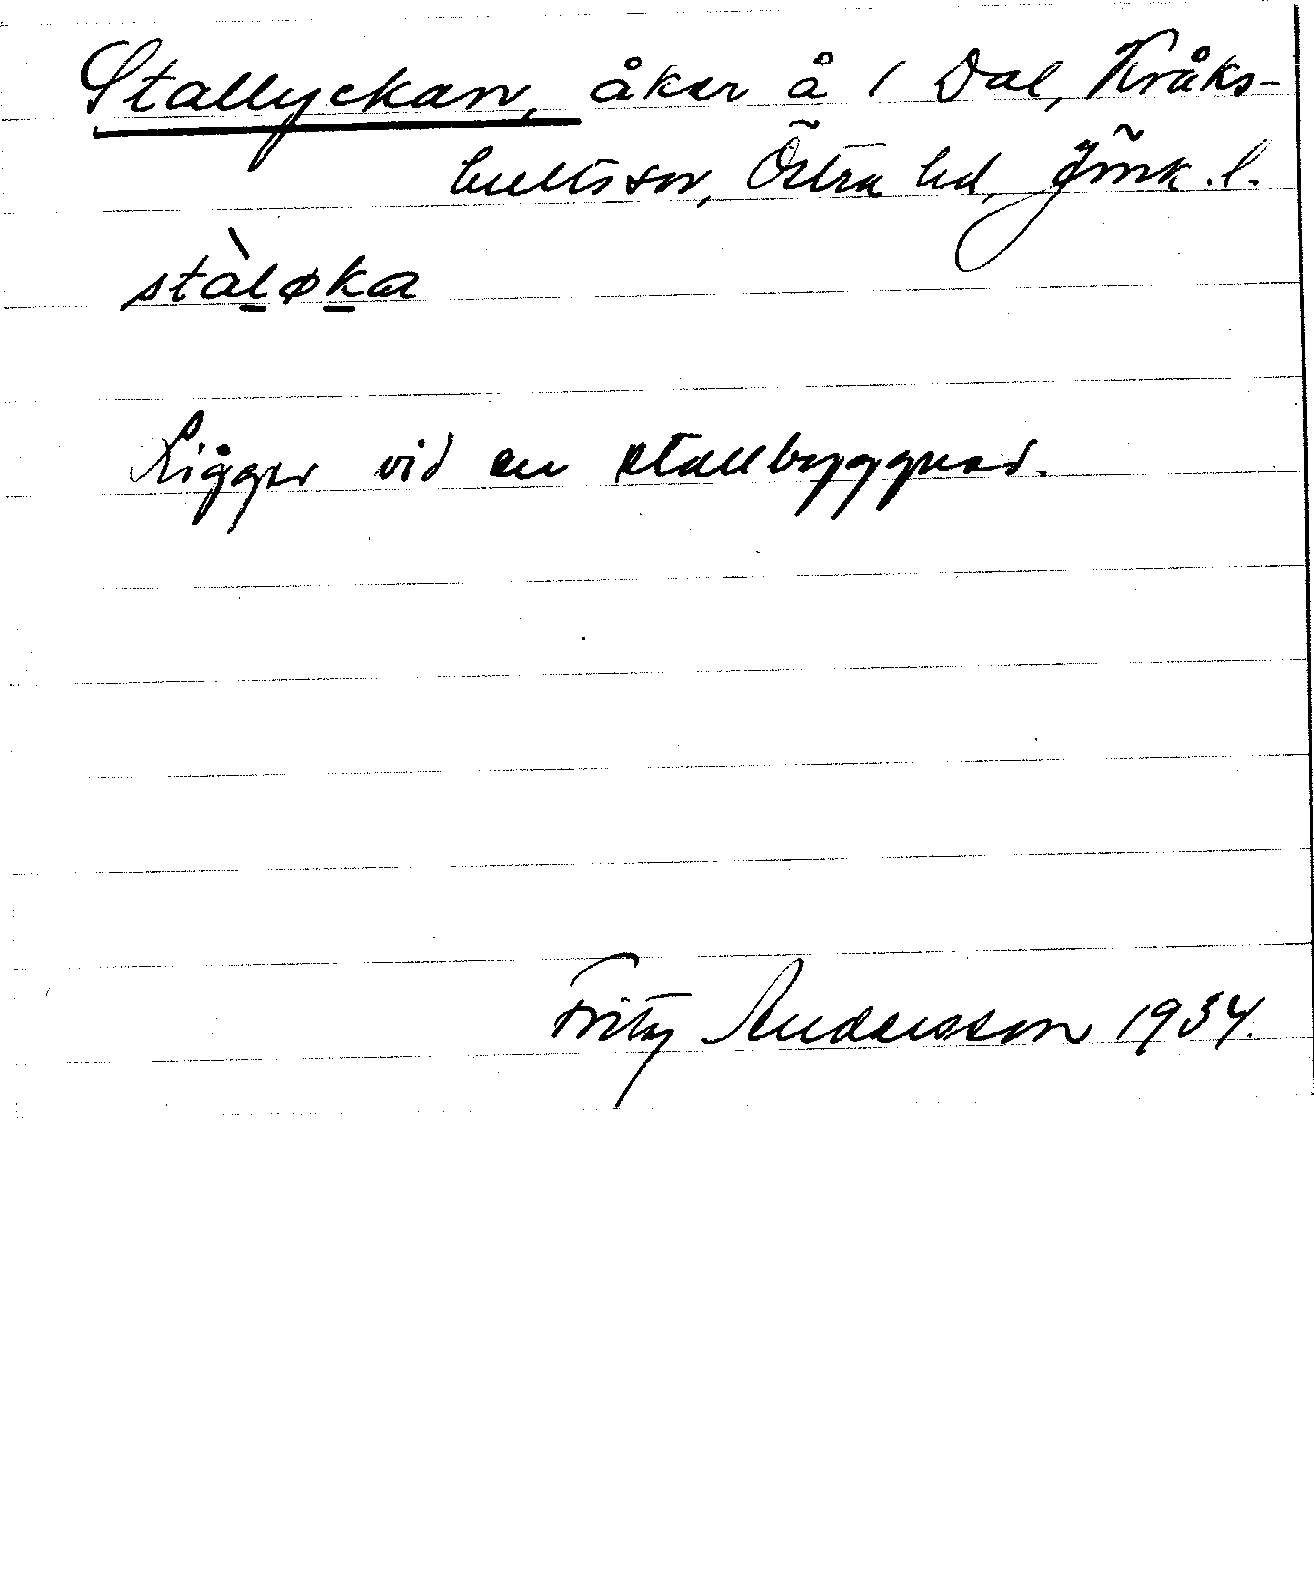 Stallyckan, åker å 1 Dal, Kråks-
hults sn, Östra hd, Jönk. l.
stàl̠øk̠a
Ligger vid en stallbyggnad.
Fritz Andersson 1934.